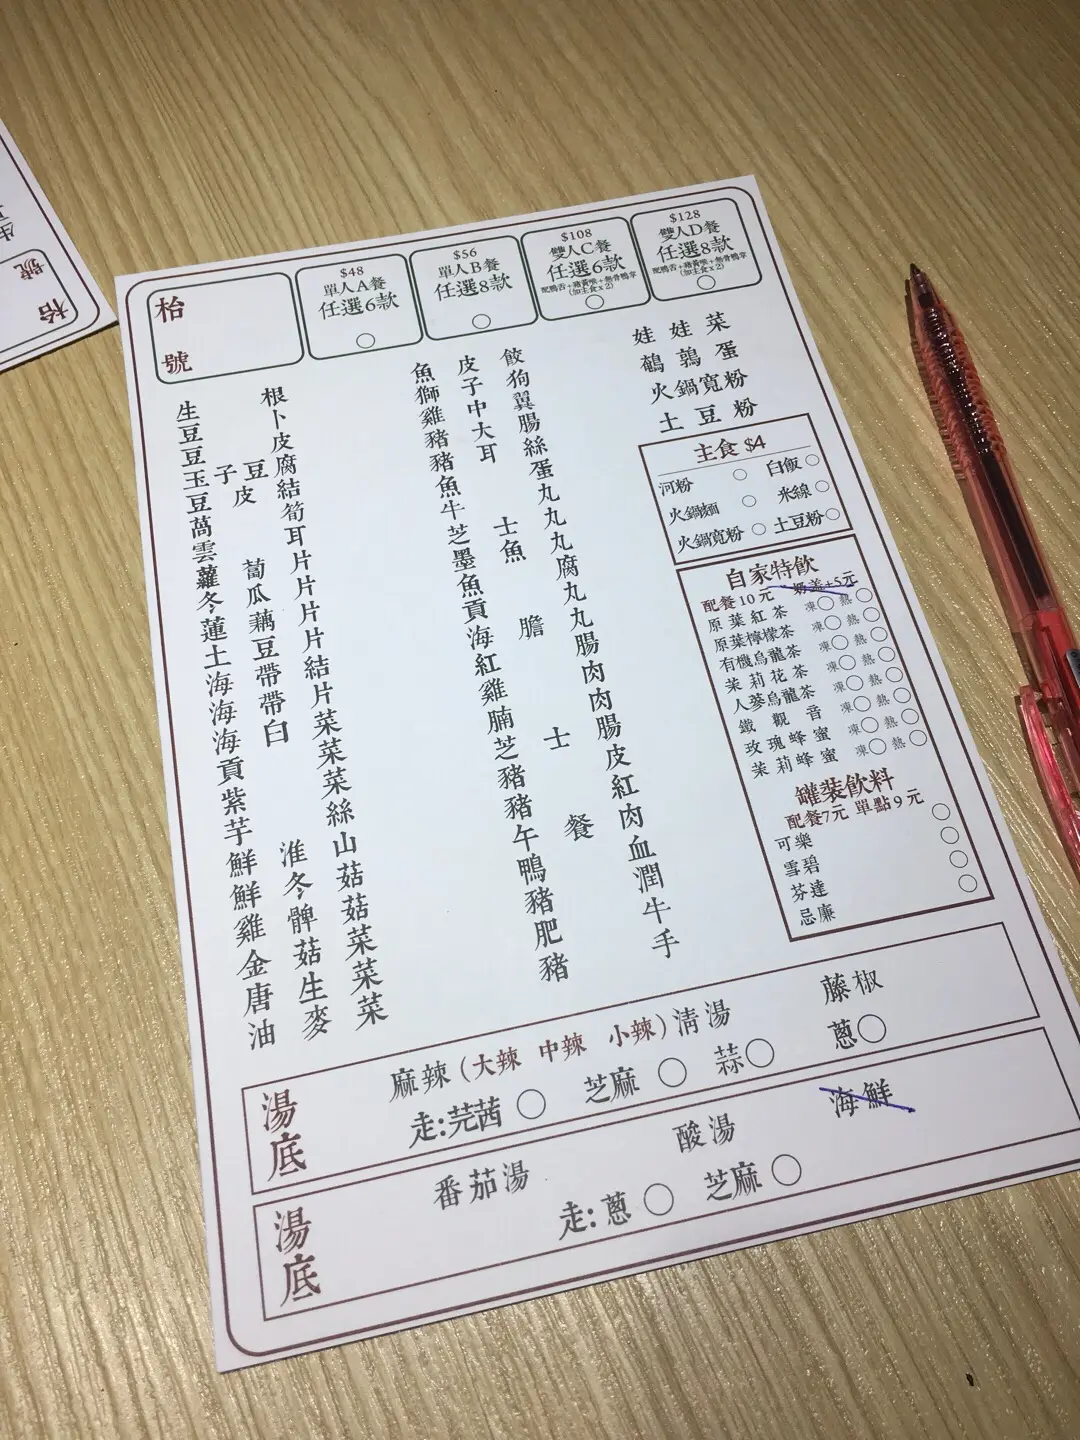 枱號
$48
單人A餐
任選6款
$56
單人B餐
任選8款
$108
雙人C餐
任選6款
(加主食x2)
$128
雙人D餐
任選8款
(加主食x2)
生根
豆卜
豆皮
玉子豆腐
豆皮結
萵筍
雲耳
蘿蔔片
冬瓜片
蓮藕片
土豆片
海帶結
海帶片
海白菜
貢菜
紫菜
芋絲
鮮淮山
鮮冬菇
雞髀菇
金菇菜
唐生菜
油麥菜
魚皮餃
獅子狗
雞中翼
豬大腸
豬耳絲
魚蛋
牛丸
芝士丸
墨魚丸
魚腐
貢丸
海膽丸
紅腸
雞肉
腩肉
芝士腸
豬皮
豬紅
午餐肉
鴨血
豬潤
肥牛
豬手
娃娃菜
鵪鶉蛋
火鍋寬粉
土豆粉
主食 $4
河粉 白飯
火鍋麵 米線
火鍋寬粉 土豆粉
自家特飲
配餐10元 奶蓋+5元
原葉紅茶 凍 熱
原葉檸檬茶 凍 熱
有機烏龍茶 凍 熱
茉莉花茶 凍 熱
人蔘烏龍茶 凍 熱
鐵觀音 凍 熱
玫瑰蜂蜜 凍 熱
茉莉蜂蜜
罐裝飲料
配餐7元 單點9元
可樂
雪碧
芬達
忌廉
湯底
麻辣(大辣 中辣 小辣) 清湯 藤椒
走:芫茜 芝麻 蒜 蔥
湯底
番茄湯 酸湯 海鮮
走:蔥 芝麻
枱號